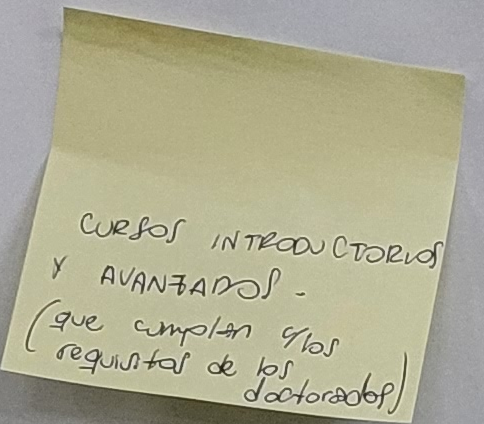 CURSOS INTRODUCTORIOS
Y AVANZADOS.
(que cumplan c/los
requisitos de los
doctorados)